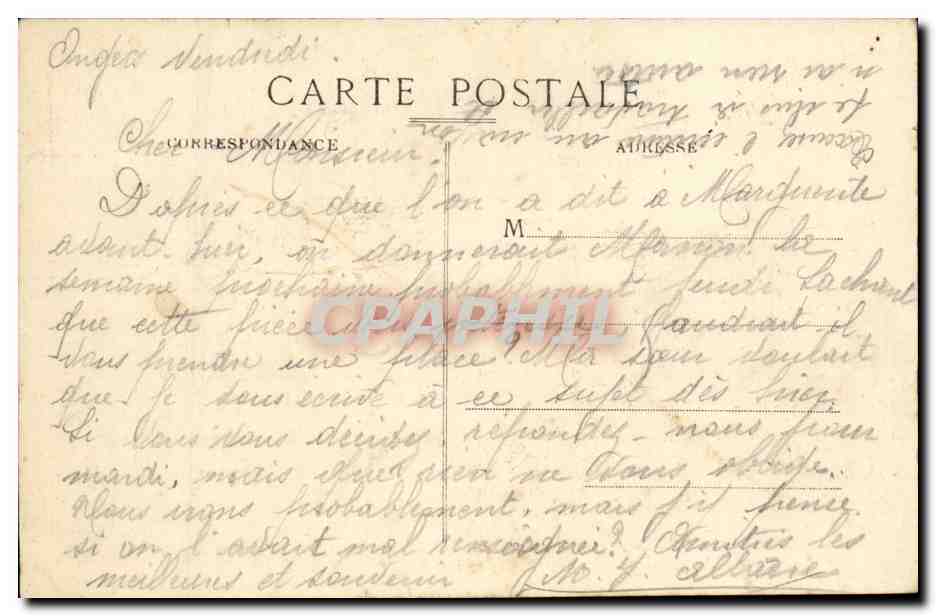 Vendredi.
CARTE POSTALE
CORRESPONDANCE
ADRESSE
Cher Monsieur,
D'après ce que l'on a dit à Marguerite
M
avant-hier, on donnerait Manon la
semaine prochaine probablement Jeudi. Sachant
que cette pièce vous faudrait il
CPAPHIL
vous prendre une place? Ma sœur voulait
que je vous écrive à ce sujet dès hier.
Si vous vous décidez, répondez-nous pour
mardi, mais que rien ne vous oblige.
Nous irons probablement, mais j'y pense
si on l'avait mal renseignée? Amitiés les
meilleures et souvenir
M. J.
Excuse l'écriture au crayon
je suis
n'ai rien